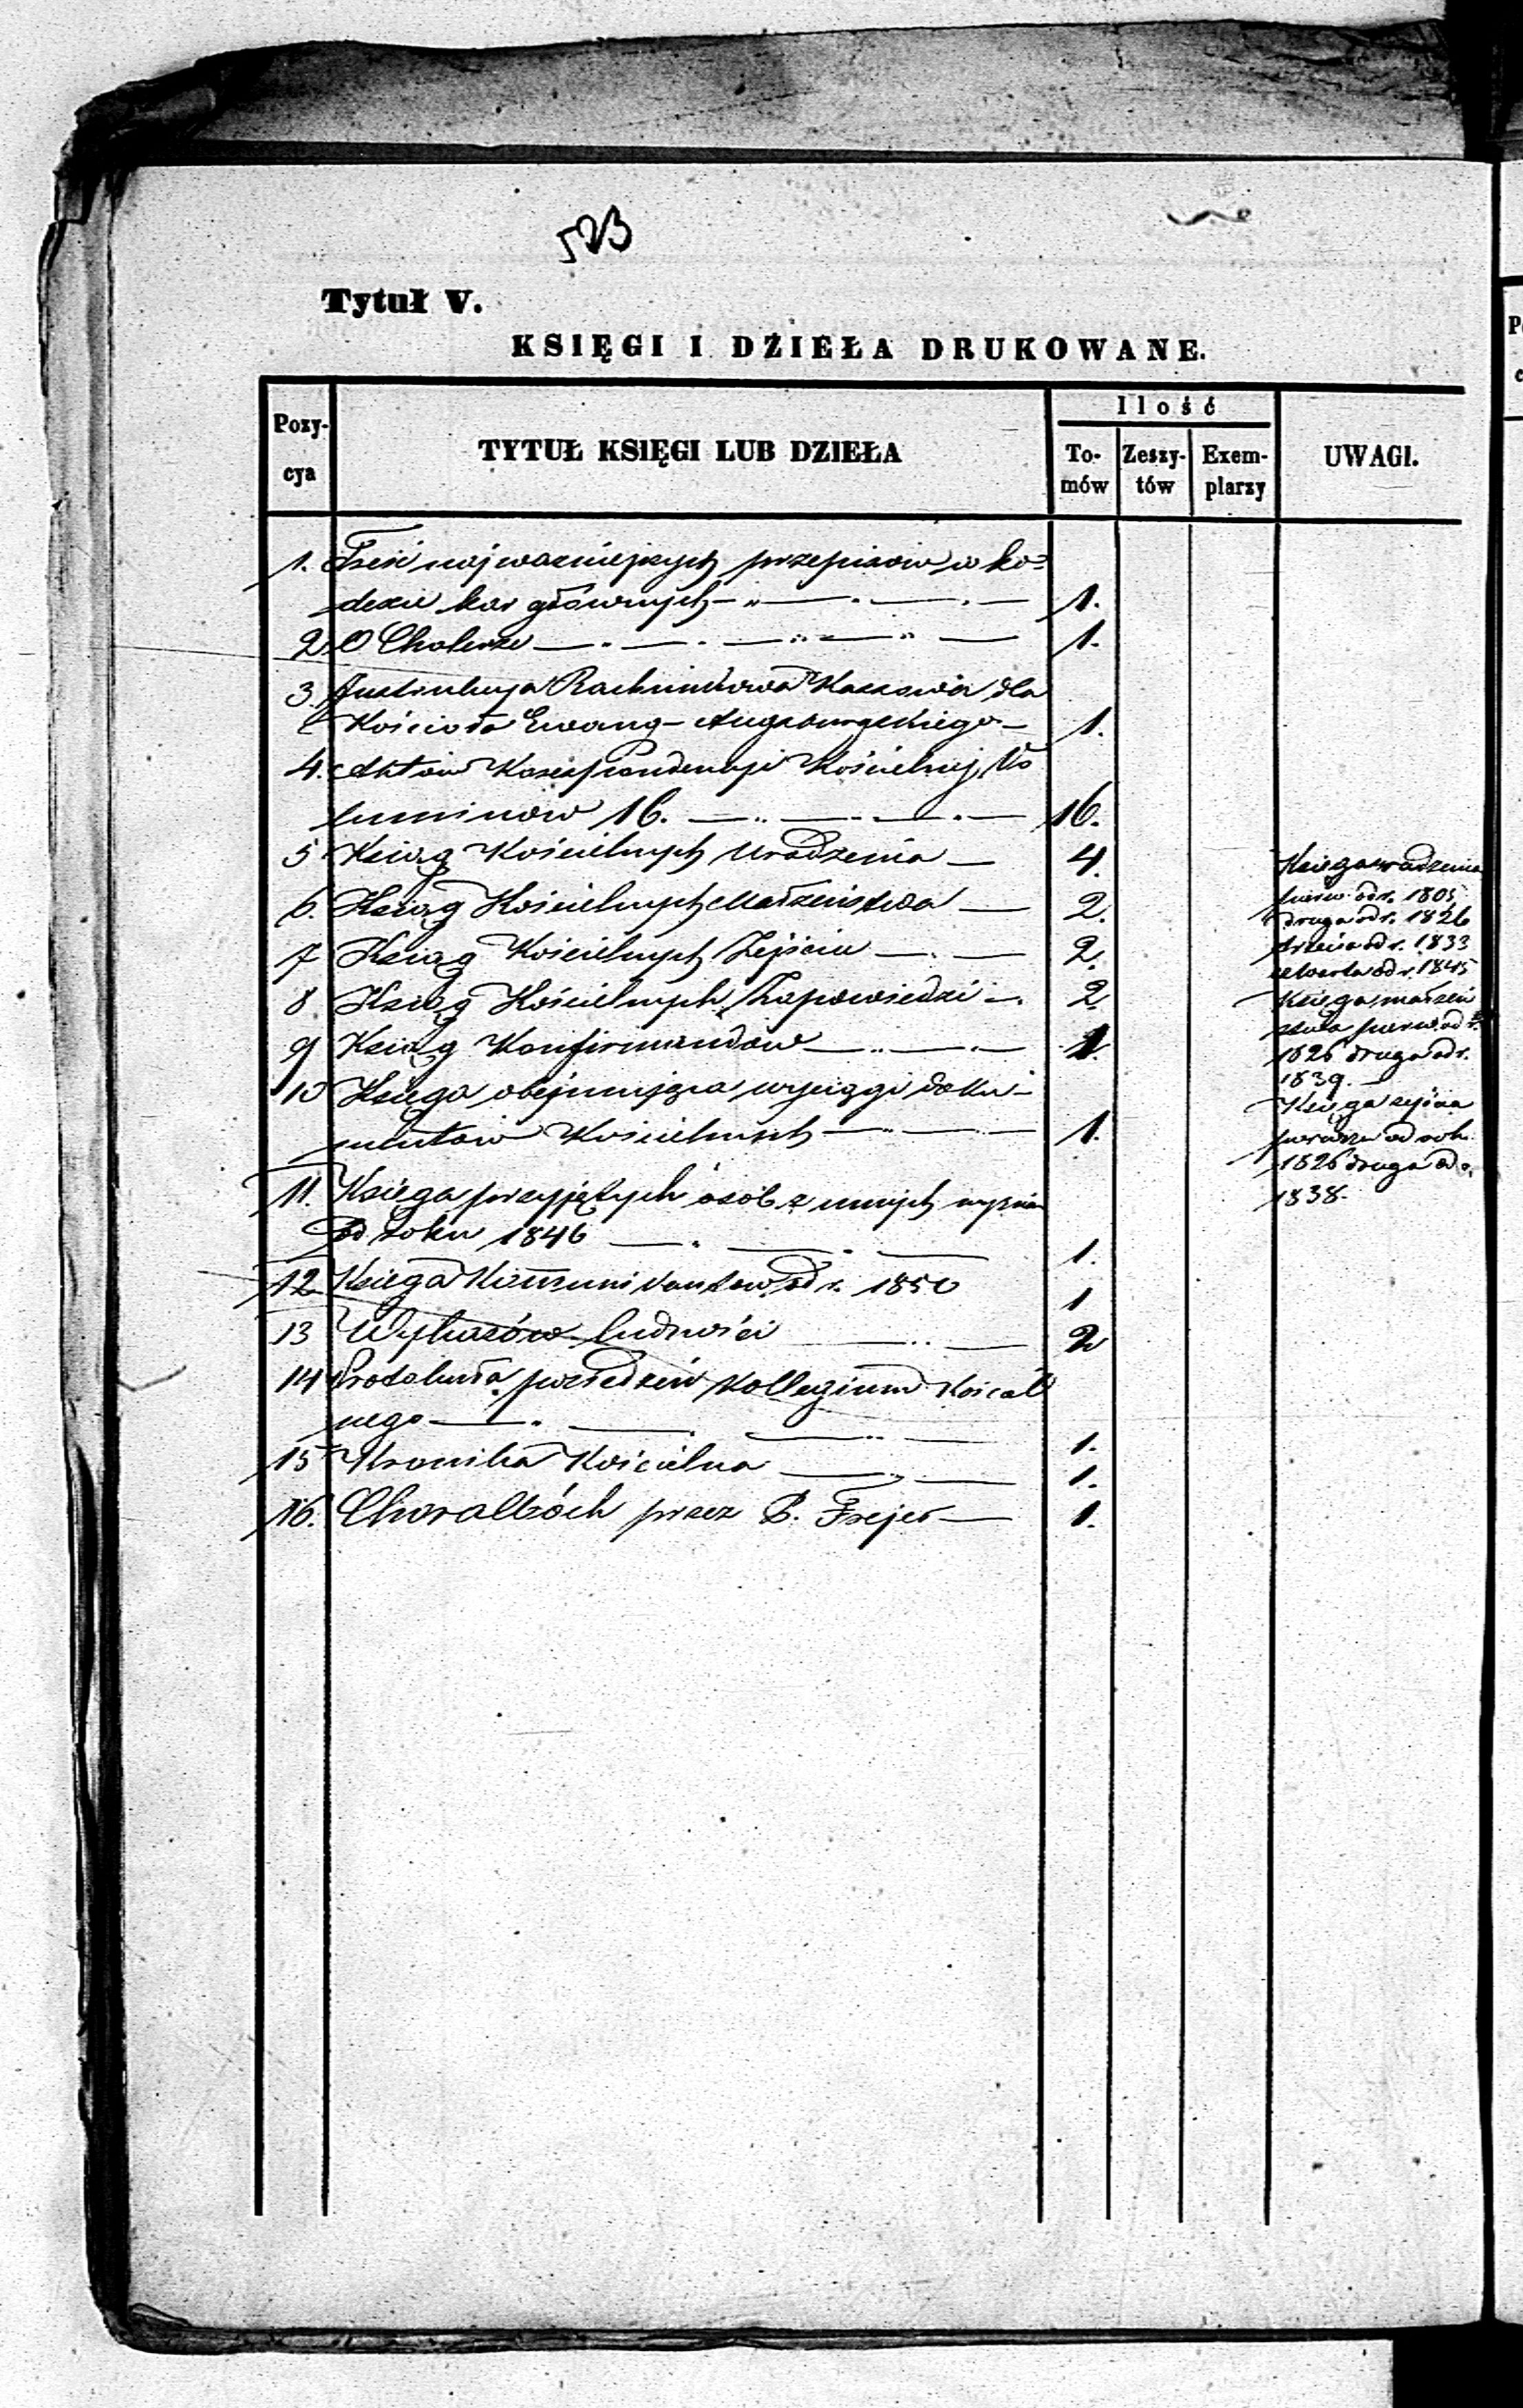 523
Tytuł V.
KSIĘGI I DZIEŁA DRUKOWANE.
Pozy-cya
TYTUŁ KSIĘGI LUB DZIEŁA
Ilość
To-mów
Zeszy-tów
Exem-plarzy
UWAGI.
1. Treść najważniejszych przepisów w ko=
dexie kar głównych 1.
2. O Cholerze 1.
3. Instrukcya Rachunkowa Kassowa dla
Kościoła Ewang- Augsburgskiego 1.
4. Aktów Korespondencyi Kościelnej Vo
luminów 16. 16.
5 Ksiąg Kościelnych Urodzenia 4.
6. Ksiąg Kościelnych Małżeństwa 2.
7 Ksiąg Kościelnych Zejścia 2.
8 Ksiąg Kościelnych Zapowiedzi 2
9 Ksiąg Konfirmandów 1.
10 Księga obejmująca wyciągi doku-
mentów Kościelnych 1.
11. Księga przyjętych osób z innych wyznań
od roku 1846 1.
12 Księga Kommunikantów od r. 1850 1
13 Wykazów ludności 2
14 Protokuła posiedzeń Kollegium Kościel
nego 1.
15 Kronika Kościelna 1.
16. Choralbóch przez B. Frejer 1.
Księga urodzenia
pierw. od r. 1805
druga od r. 1826
trzecia od r. 1833
czwarta od r. 1845
Księga małżeń
stwa pierw. od r.
1826 druga od r.
1839.
Księga zejścia
pierwsza od rok.
1826 druga od r.
1838.